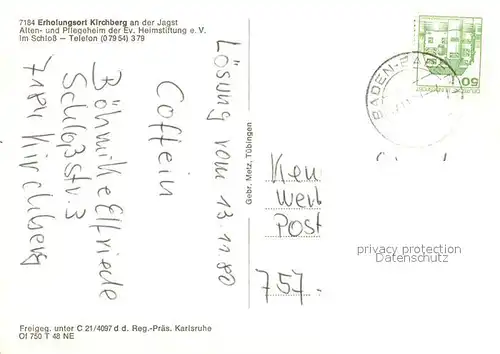 7184 Erholungsort Kirchberg an der Jagst
Alten- und Pflegeheim der Ev. Heimstiftung e. V.
Im Schloß – Telefon (07954) 379
Lösung vom 13.11.80
Coffein
Böhnike Elfriede
Schloßstr. 3
7184 Kirchberg
Gebr. Metz, Tübingen
BADEN-BA
50
Ken
Werb
Post
757.
privacy protection
watermark
Freigeg. unter C 21/4097 d d. Reg.-Präs. Karlsruhe
Of 750 T 48 NE